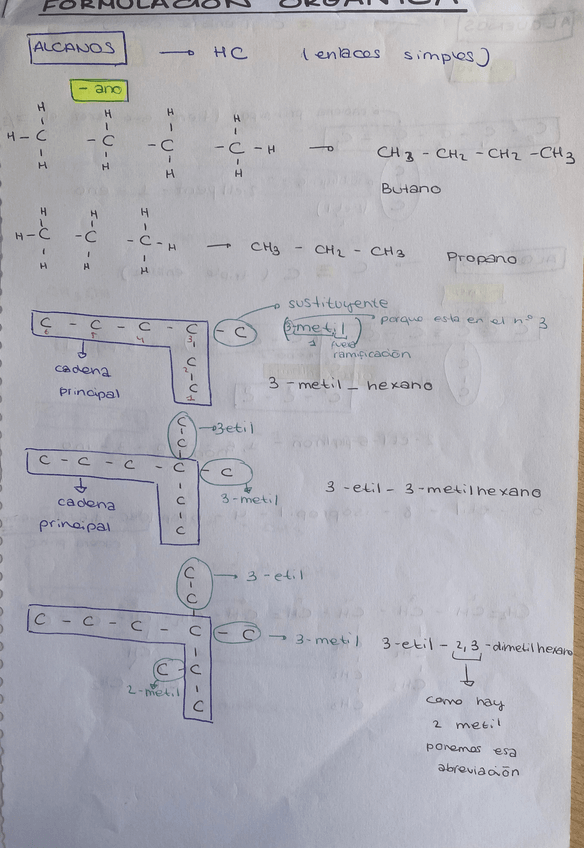 FORMULACIÓN ORGÁNICA
ALCANOS → HC (enlaces simples)
- ano
H H H H
H - C - C - C - C - H → CH3 - CH2 - CH2 - CH3
H H H H
Butano
H H H
H - C - C - C - H → CH3 - CH2 - CH3 Propano
H H H
sustituyente
C - C - C - C - C (3-metil) porque esta en el nº 3
6 5 4 3 1
ramificación
cadena C 2
principal C 1
3 - metil - hexano
C → 3etil
C
C - C - C - C - C
3-metil
3 - etil - 3 - metilhexano
cadena C
principal C
C → 3-etil
C
C - C - C - C - C → 3-metil 3-etil - 2,3 - dimetilhexano
C - C
2-metil
C
como hay
2 metil
ponemos esa
abreviación